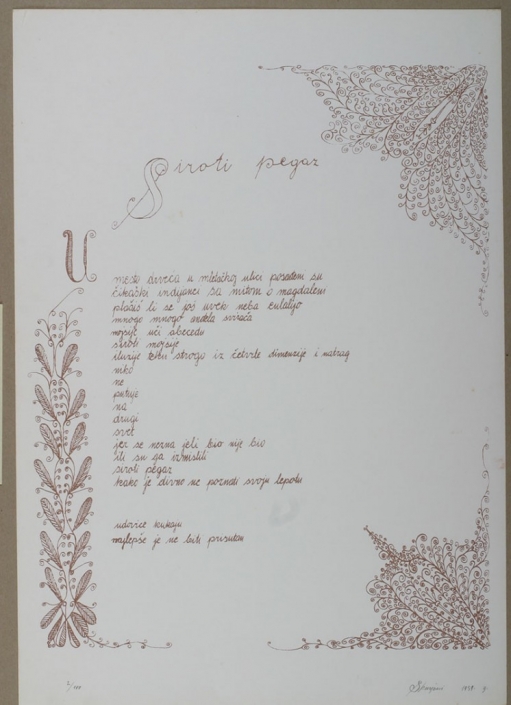 Siroti pegaz
Umesto drveća u mletačkoj ulici posađeni su
čikaški indijanci sa mitom o magdaleni
plašiš li se još uvek neba eulalijo
mnogo mnogo anđela svraća
mojsije uči abecedu
siroti mojsije
iluzije teku strogo iz četvrte dimenzije i natrag
niko
ne
putuje
na
drugi
svet
jer se nezna jeli bio nije bio
ili su ga izmislili
siroti pegaz
kako je divno ne poznati svoju lepotu
udovice kukaju
najlepše je ne biti prisutan